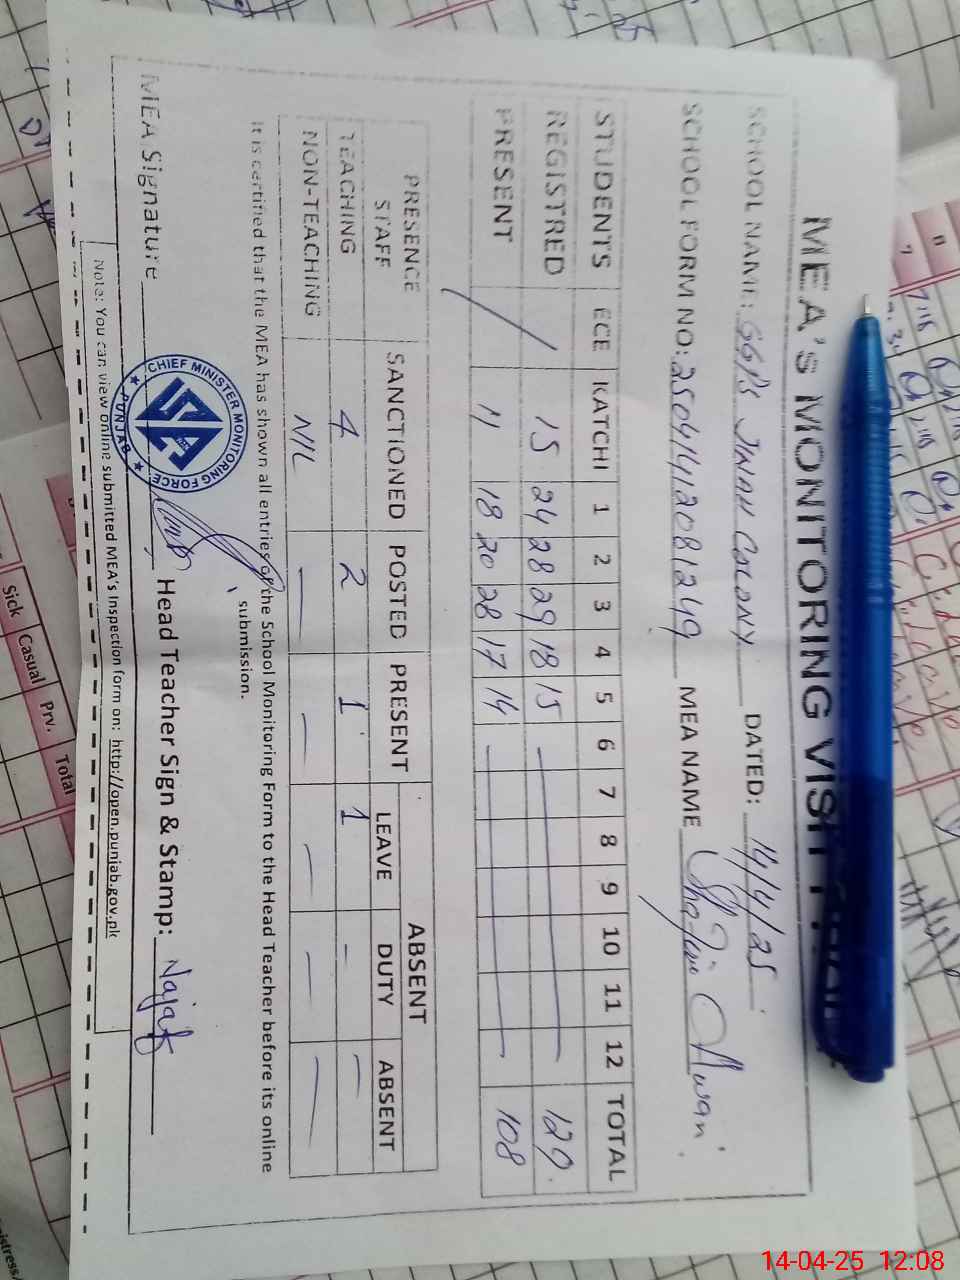 MEA's MONITORING VISIT
SCHOOL NAME: GGPS JINAH COLONY DATED: 14/4/25
SCHOOL FORM NO: 25041412081249 MEA NAME Awan
STUDENTS ECE KATCHI 1 2 3 4 5 6 7 8 9 10 11 12 TOTAL
REGISTRED / 15 24 28 29 18 15 — 129
PRESENT 11 18 20 28 17 14 — 108
PRESENCE STAFF SANCTIONED POSTED PRESENT ABSENT
LEAVE DUTY ABSENT
TEACHING 4 2 1 1 - —
NON-TEACHING NIL — — — — —
It is certified that the MEA has shown all entries of the School Monitoring Form to the Head Teacher before its online
submission.
MEA Signature Head Teacher Sign & Stamp: Najaf
CHIEF MINISTER MONITORING FORCE
★ PUNJAB ★
Note: You can view online submitted MEA's inspection form on: http://open.punjab.gov.pk
Sick Casual Prv. Total
14-04-25 12:08